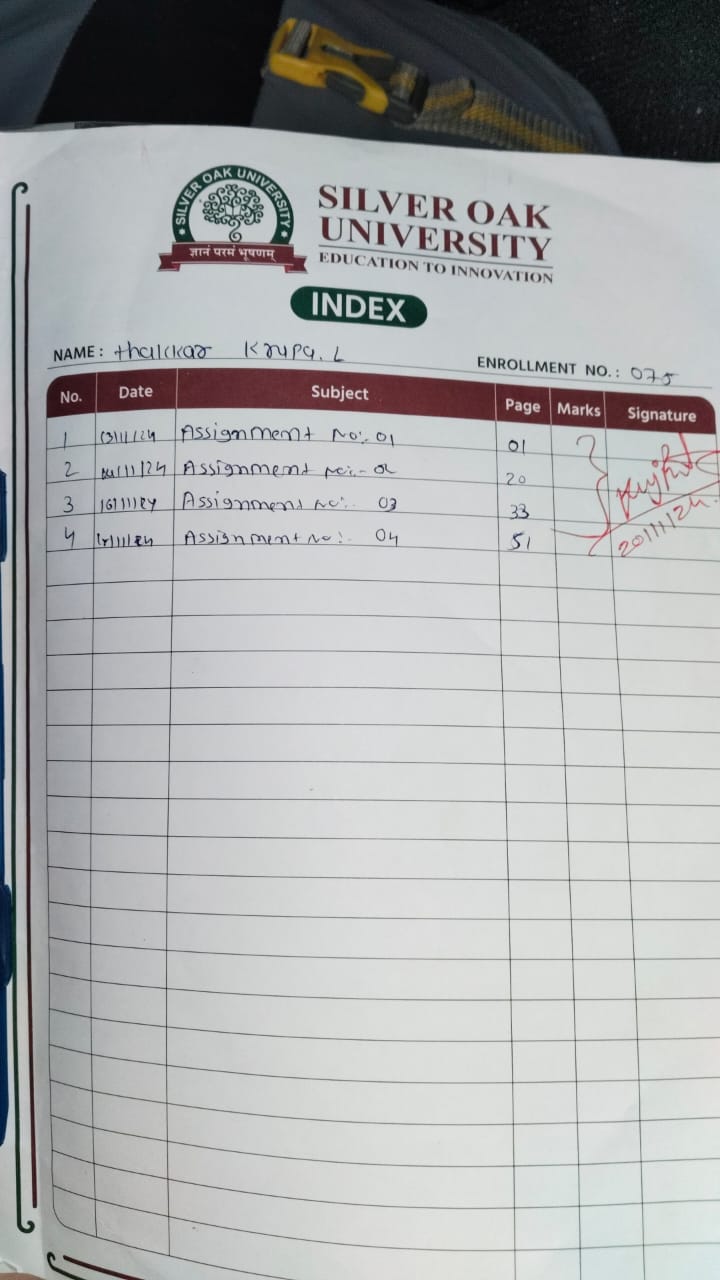 SILVER OAK UNIVERSITY
ज्ञानं परमं भूषणम्
SILVER OAK
UNIVERSITY
EDUCATION TO INNOVATION
INDEX
NAME: thakkar Krupa. L
ENROLLMENT NO.: 075
No. Date Subject Page Marks Signature
1 13/11/24 Assignment No:- 01 01
2 /11/24 Assignment No:- 02 20
3 16/11/24 Assignment No:- 03 33
4 Assignment No:- 04 51
20/11/24